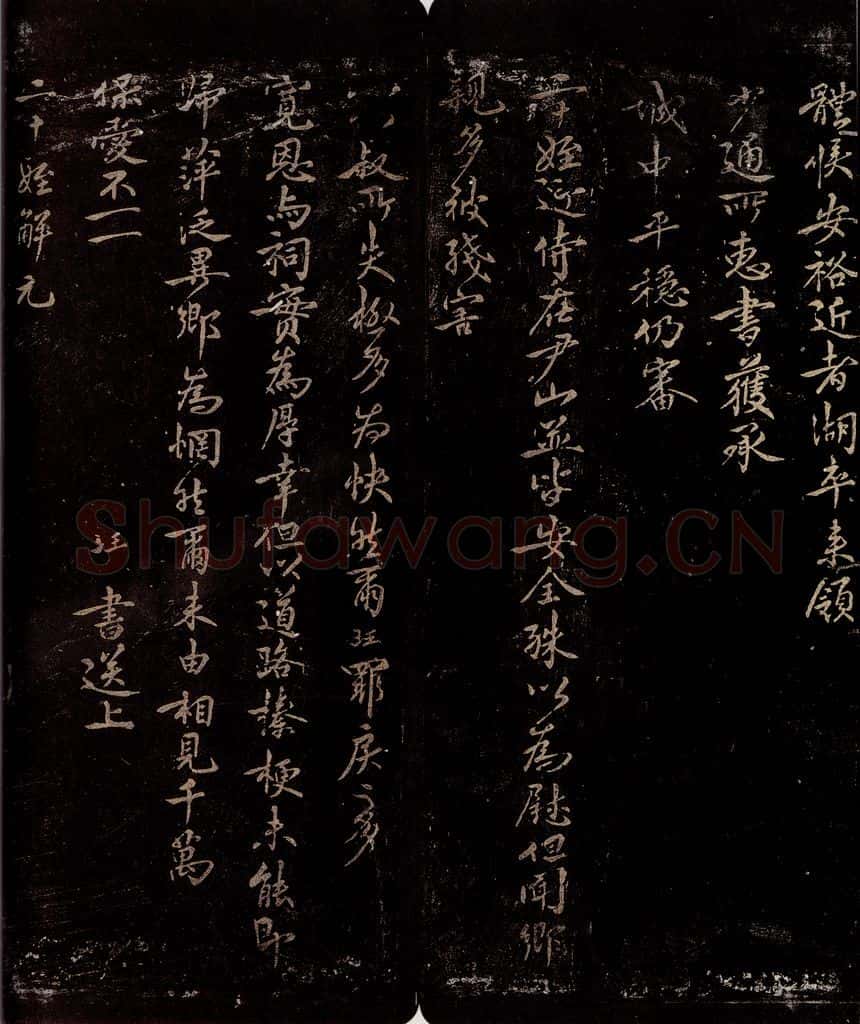 體候安裕近者湖卒来領
少通所惠書獲承
城中平穩仍審
姪近侍在尹山並皆安全殊以為慰但聞鄉
親多被殘害
叔所失極多為怏然爾 罪戾之多
寬恩与祠實為厚幸但以道路榛梗未能即
歸萍泛異鄉為惘然爾未由相見千萬
保愛不一一
書送上
二十姪解元
Shufawang.CN